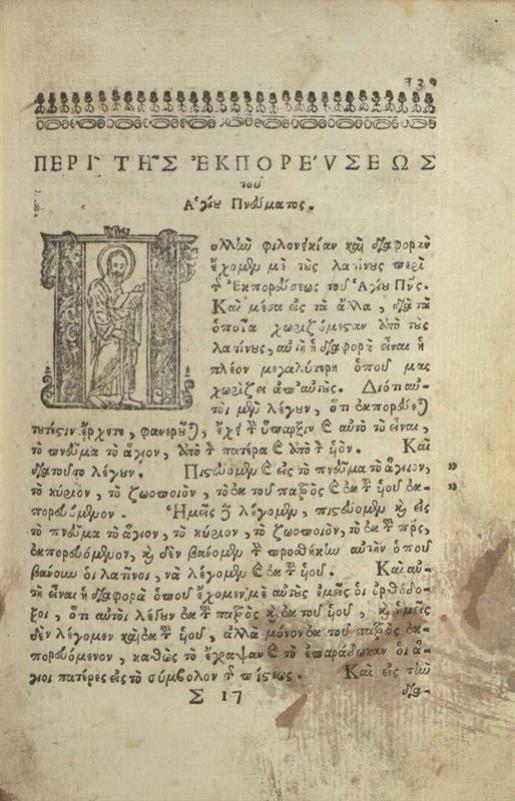 139
ΠΕΡΙ ΤΗΣ ἘΚΠΟΡΕΎΣΕΩΣ
τοῦ
Ἁγίου Πνεύματος.
Πολλὴν φιλονεικίαν καὶ διαφορὰν
ἔχομεν μὲ τοὺς λατίνους περὶ
τ῀ Ἐκπορεύσεως τοῦ Ἁγίου Πν῀ς.
Καὶ μέσα εἰς τὰ ἄλλα, διὰ τὰ
ὁποῖα χωριζόμεσταν ἀπὸ τοὺς
λατίνους, αὐτὴ ἡ διαφορὰ εἶναι ἡ
πλέον μεγαλύτερη ὁποῦ μας
χωρίζει ἀπ' αὐτοὺς. Διότι αὐ-
τοὶ μὲν λέγουν, ὅτι ἐκπορεύεται
τουτέστιν ἔρχεται, φανεροῦται, ἔχει τ῀ ὕπαρξιν καὶ αὐτὸ τὸ εἶναι,
τὸ πνεῦμα τὸ ἅγιον, ἀπὸ τ῀ πατέρα καὶ ἀπὸ τ῀ ἱόν. Καὶ
διατοῦτο λέγουν. Πιστεύομεν καὶ εἰς τὸ πνεῦμα τὸ ἅγιον, „
τὸ κύριον, τὸ ζωοποιὸν, τὸ ἐκ τοῦ πατρὸς καὶ ἐκ τ῀ ἱοῦ ἐκ- „
πορευόμενον. Ἡμεῖς δὲ λέγομεν, πιστεύομεν καὶ εἰς
τὸ πνεῦμα τὸ ἅγιον, τὸ κύριον, τὸ ζωοποιὸν, τὸ ἐκ τ῀ πρ῀ς,
ἐκπορευόμενον, καὶ δὲν βάνομεν τ῀ προσθήκην αὐτὴν ὁποῦ
βάνουν οἱ λατῖνοι, νὰ λέγομεν καὶ ἐκ τ῀ ἱοῦ. Καὶ αὐ-
τὴ εἶναι ἡ διαφορὰ ὁποῦ ἔχομεν μὲ αὐτοὺς ἐμεῖς οἱ ὀρθόδο-
ξοι, ὅτι αὐτοὶ λέγουν ἐκ τ῀ πατρὸς καὶ ἐκ τοῦ ἱοῦ, καὶ ἡμεῖς
δὲν λέγομεν καὶ ἐκ τ῀ ἱοῦ, ἀλλὰ μόνον ἐκ τοῦ πατρὸς ἐκ-
πορευόμενον, καθὼς τὸ ἔγραψαν καὶ τὸ ἐπαράδωκαν οἱ ἅ-
γιοι πατέρες εἰς τὸ σύμβολον τ῀ πίστεως. Καὶ εἰς τὴν
Σ 17 δια-